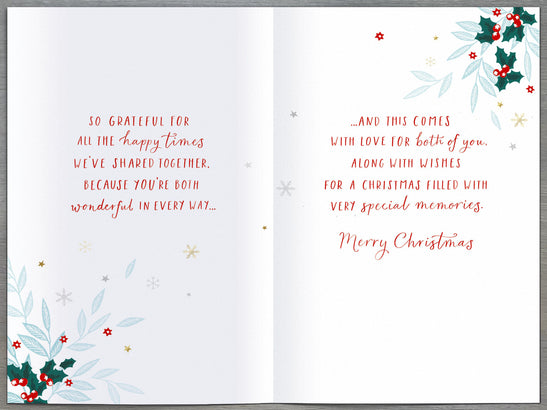 SO GRATEFUL FOR
ALL THE happy times
WE'VE SHARED TOGETHER,
BECAUSE YOU'RE BOTH
wonderful IN EVERY WAY...
...AND THIS COMES
WITH LOVE FOR both of you,
ALONG WITH WISHES
FOR A CHRISTMAS FILLED WITH
VERY special memories.
Merry Christmas